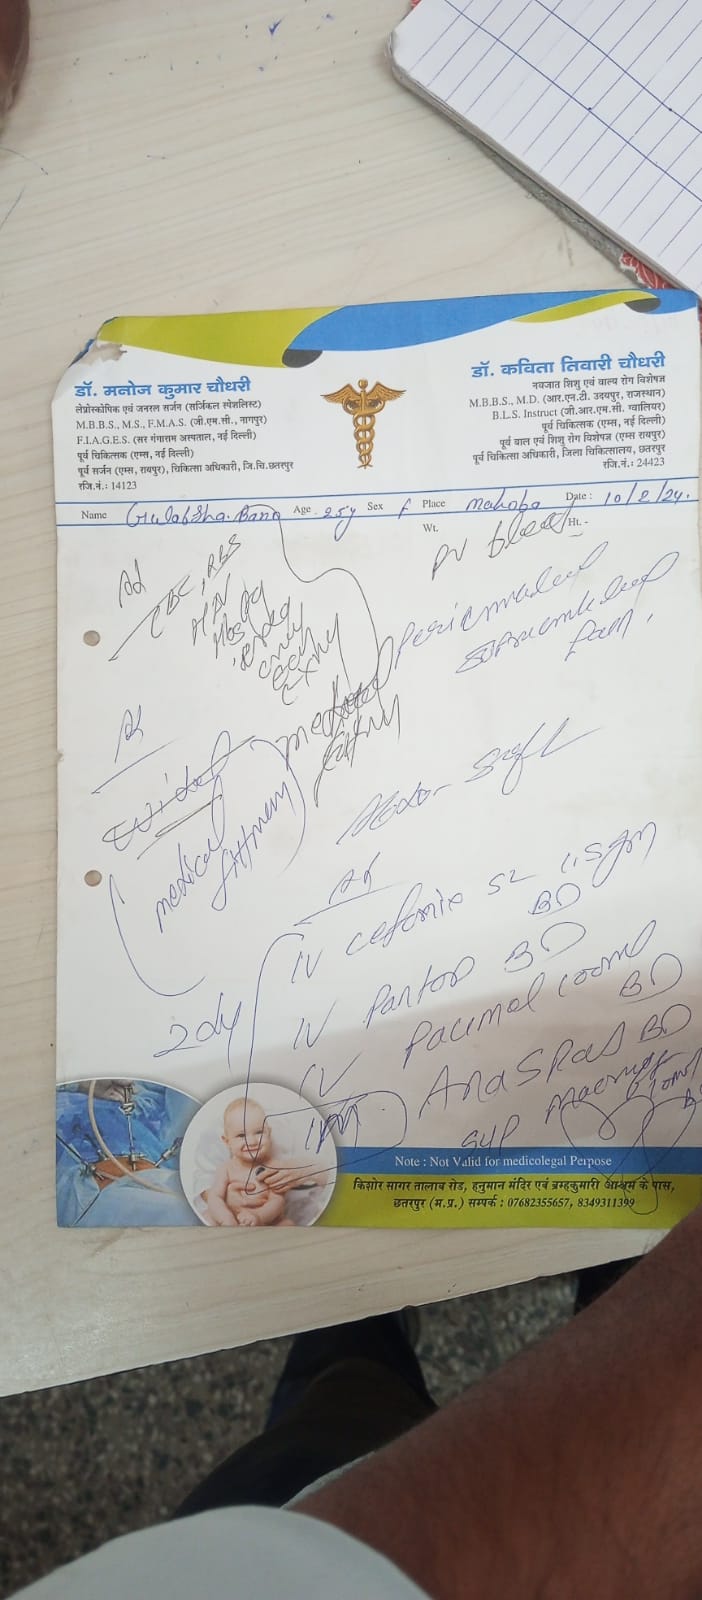 डॉ. मनोज कुमार चौधरी
लेप्रोस्कोपिक एवं जनरल सर्जन (सर्जिकल स्पेशलिस्ट)
M.B.B.S., M.S., F.M.A.S. (जी.एम.सी., नागपुर)
F.I.A.G.E.S. (सर गंगाराम अस्पताल, नई दिल्ली)
पूर्व चिकित्सक (एम्स, नई दिल्ली)
पूर्व सर्जन (एम्स, रायपुर), चिकित्सा अधिकारी, जि.चि.छतरपुर
रजि.नं.: 14123
डॉ. कविता तिवारी चौधरी
नवजात शिशु एवं बाल्य रोग विशेषज्ञ
M.B.B.S., M.D. (आर.एन.टी. उदयपुर, राजस्थान)
B.L.S. Instruct (जी.आर.एम.सी. ग्वालियर)
पूर्व चिकित्सक (एम्स, नई दिल्ली)
पूर्व बाल एवं शिशु रोग विशेषज्ञ (एम्स रायपुर)
पूर्व चिकित्सा अधिकारी, जिला चिकित्सालय, छतरपुर
रजि.नं.: 24423
Name Gulabsha Bano Age 25y Sex F Place Mahoba Date : 10/2/24.
Wt. Ht. -
PV bleed
Adv
CBC, RBS
HIV
HbsAg
Periumbilical
pain.
medical
fitness
Adv
widal
medical
fitness
Abdo- Soft
Adv
IV cefomix S2 1.5gm
BD
IV Pantop BD
2dy
IV Pacimol 100ml
BD
IM Anaspas BD
syp
Note : Not Valid for medicolegal Perpose
किशोर सागर तालाब रोड, हनुमान मंदिर एवं ब्रम्हकुमारी आश्रम के पास,
छतरपुर (म.प्र.) सम्पर्क : 07682355657, 8349311399